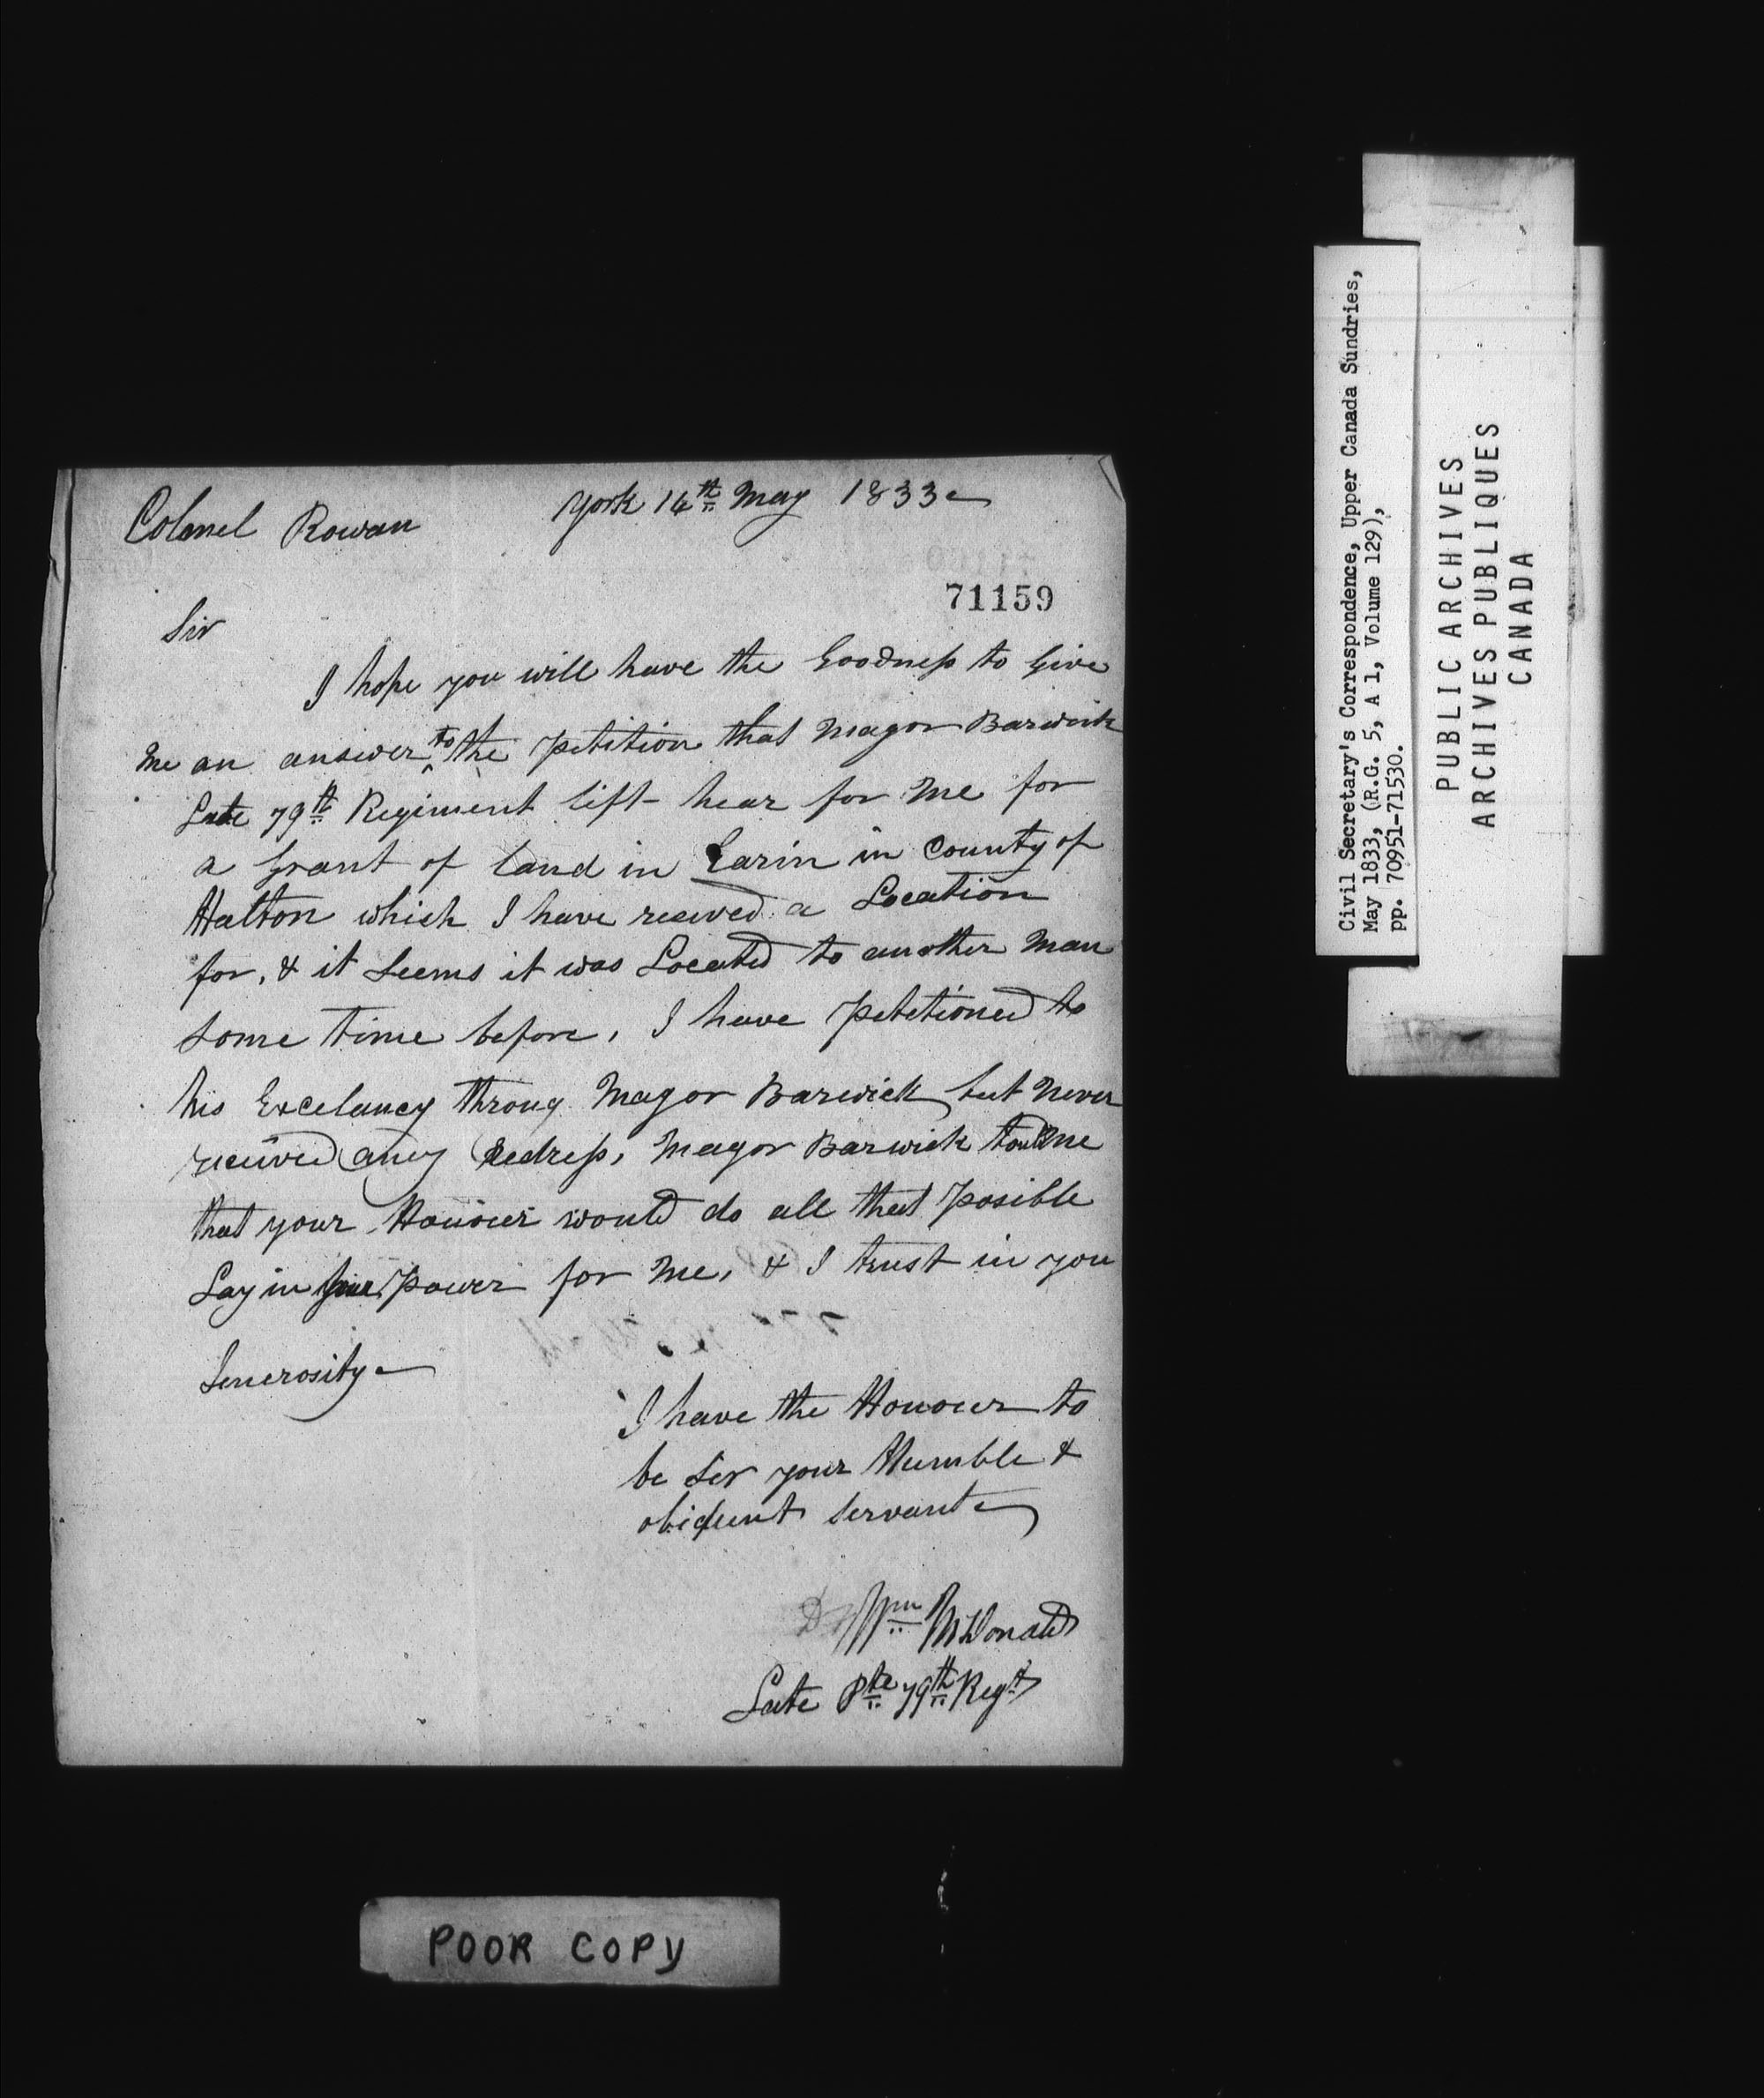 Colonel Rowan York 14th May 1833
71159
Sir
I hope you will have the Goodness to Give
me an answer to the Petition that Magor Barwick
Late 79th Regiment left hear for me for
a Grant of land in Earin in County of
Halton which I have receved a Location
for, & it Seems it was Located to another man
some time before, I have Petetioned to
his Excelancy throug Magor Barwick but never
received aney Redress, Magor Barwick tould me
that your Honour would do all that Posible
Lay in your Power for me, & I trust in you
Generosity
I have the Honour to
be Sir your Humble &
obident Servant
Wm McDonald
Late Pte 79th Regt
Civil Secretary's Correspondence, Upper Canada Sundries,
May 1833, (R.G. 5, A 1, Volume 129),
pp. 70951-71530.
PUBLIC ARCHIVES
ARCHIVES PUBLIQUES
CANADA
POOR COPY